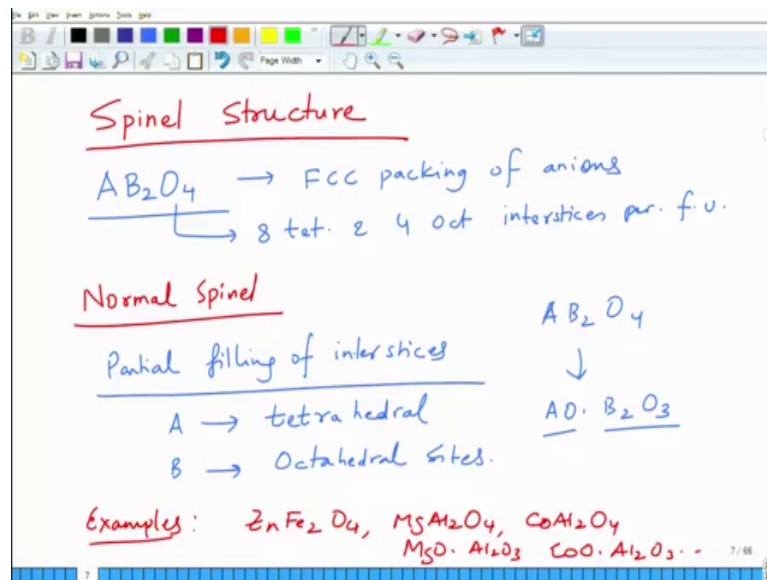 File Edit View Insert Actions Tools Help
B I
Page Width
Spinel Structure
AB2O4 → FCC packing of anions
→ 8 tet. & 4 Oct interstices per. f.u.
Normal Spinel
AB2O4
Partial filling of interstices
↓
A → tetrahedral
AO. B2O3
B → Octahedral sites.
Examples : ZnFe2O4, MgAl2O4, CoAl2O4
MgO. Al2O3 CoO. Al2O3..
7/66
7